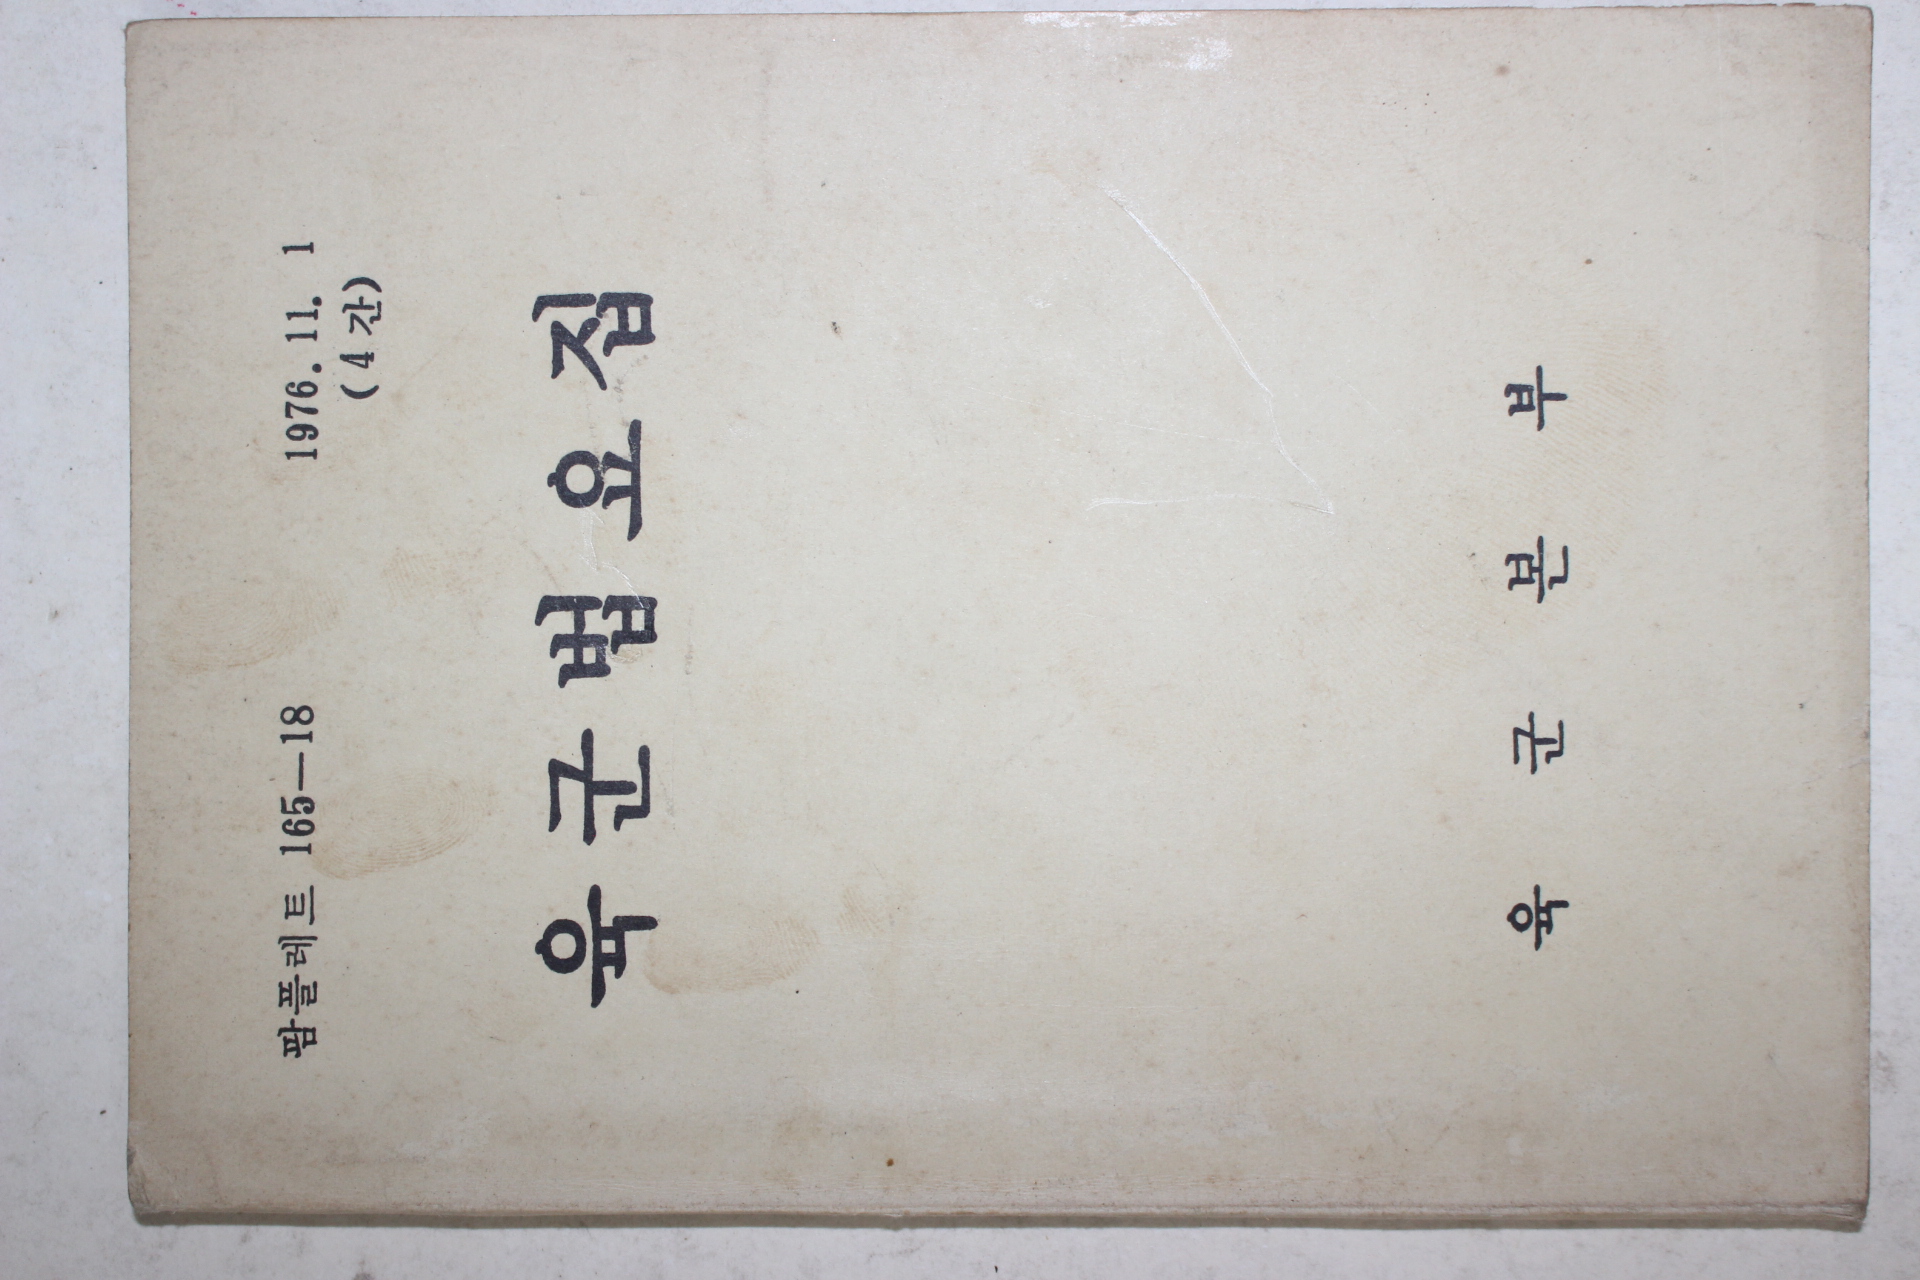 팜플레트 165—18
1976. 11. 1
(4간)
육군법요집
육군본부